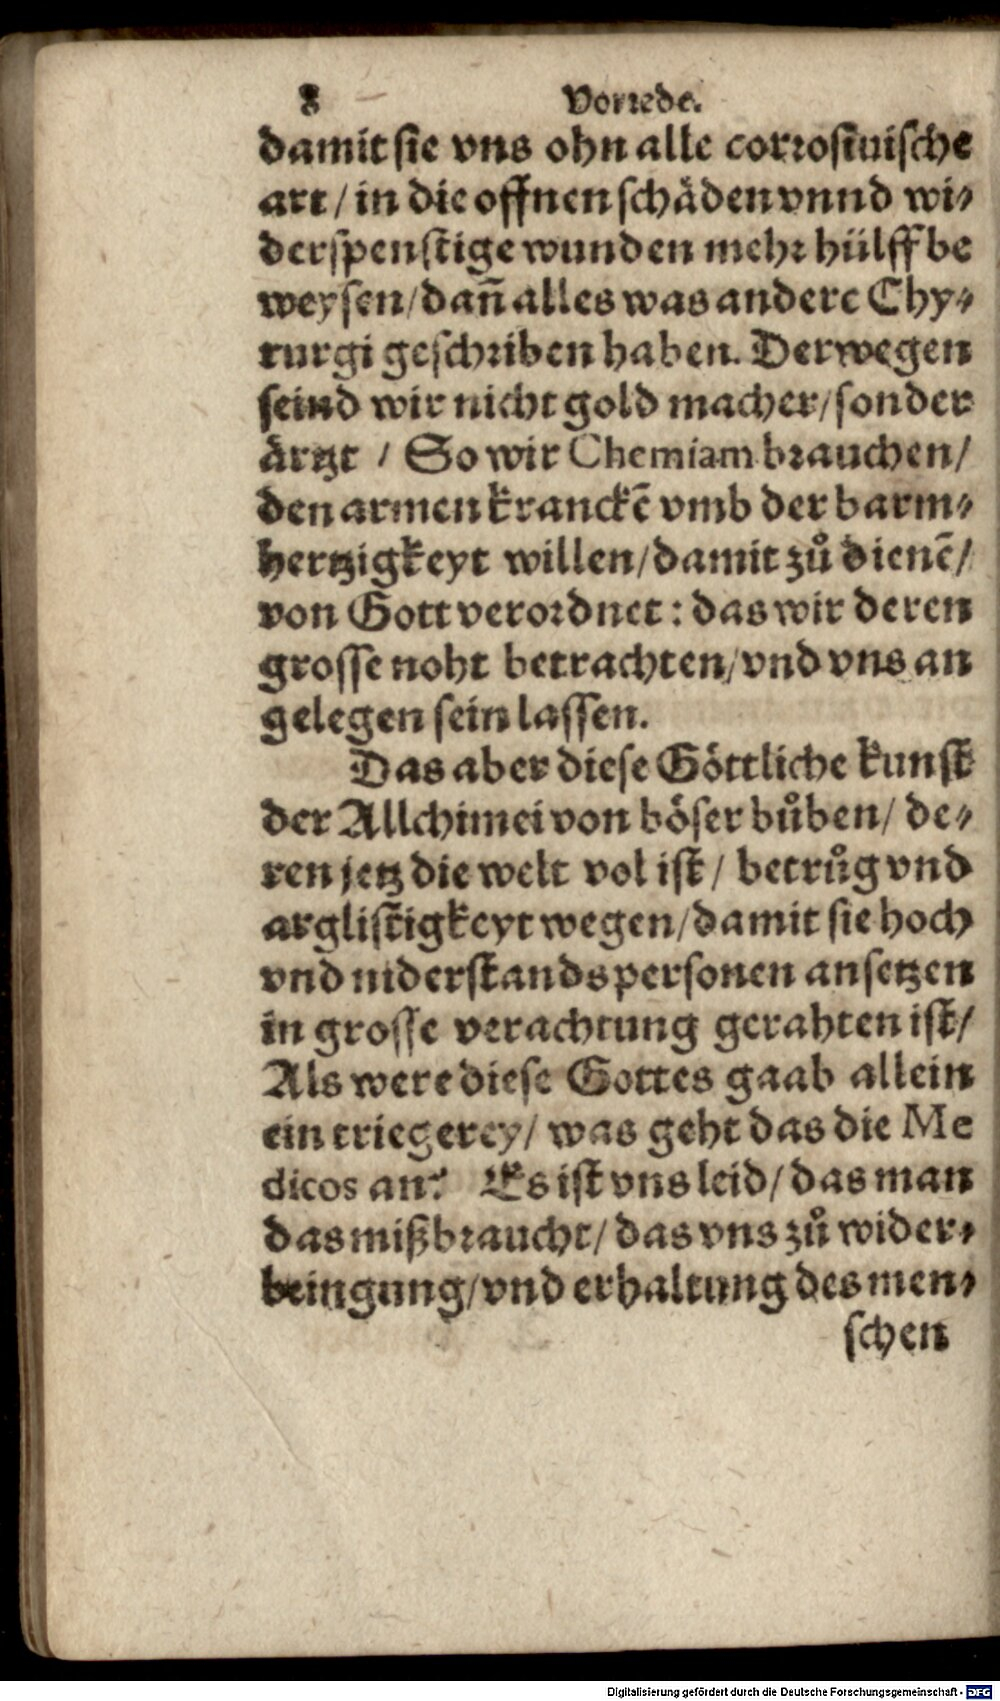 8 Vorrede.
damit sie vns ohn alle corrosiuische
art / in die offnen schäden vnnd wi-
derspenstige wunden mehr hülff be
weysen / dañ alles was andere Chy-
rurgi geschriben haben. Derwegen
seind wir nicht gold macher / sonder
ärtzt / So wir Chemiam brauchen /
den armen kranckē vmb der barm-
hertzigkeyt willen / damit zů dienē /
von Gott verordnet : das wir deren
grosse noht betrachten / vnd vns an
gelegen sein lassen.
Das aber diese Göttliche kunst
der Allchimei von böser bůben / de-
ren jetz die welt vol ist / betrůg vnd
arglistigkeyt wegen / damit sie hoch
vnd niderstands personen ansetzen
in grosse verachtung gerahten ist /
Als were diese Gottes gaab allein
ein triegerey / was geht das die Me
dicos an? Es ist vns leid / das man
das mißbraucht / das vns zů wider-
bringung / vnd erhaltung des men-
schen
Digitalisierung gefördert durch die Deutsche Forschungsgemeinschaft - DFG